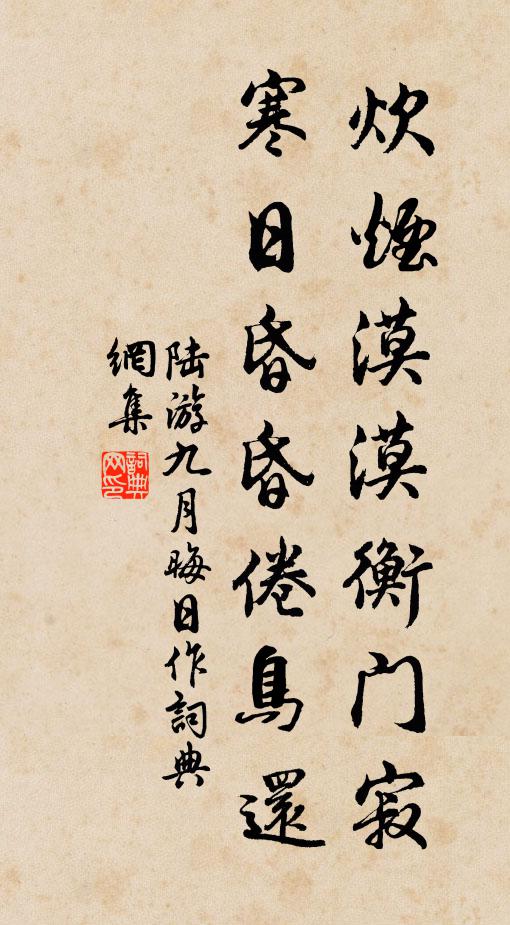 炊煙漠漠衡门寂
寒日昏昏倦鳥還
陆游九月晦日作詞典
網集
詞典网印